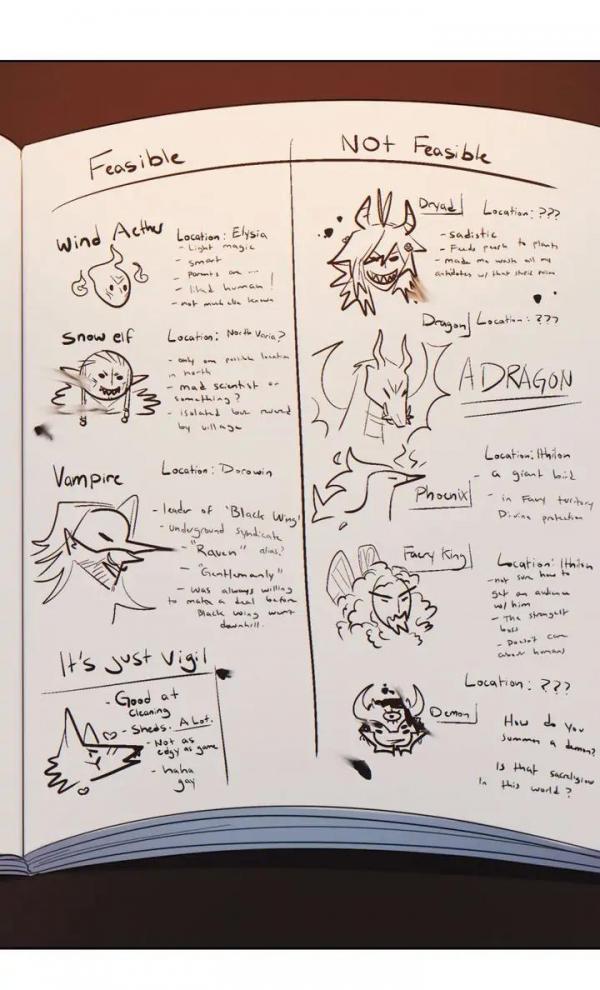 Feasible
Wind Aether
Location: Elysia
- Light magic
- smart
- parents are ...
- liked human!
- not much else known
Snow elf
Location: North Varia?
- only one possible location
in north
- mad scientist or
something?
- isolated but
by village
Vampire
Location: Dorowin
- leader of 'Black Wing'
- underground syndicate
- "Raven" alias?
- "Gentlemanly"
- was always willing
to make a deal before
Black wing went
downhill.
It's Just Vigil
- Good at
cleaning
- Sheds. A Lot.
- Not as
edgy as game
- haha
gay
Not Feasible
Dryad
Location: ???
- sadistic
- Feeds people to plants
- made me wash all my
antidotes w/ that stupid
Dragon
Location: ???
A DRAGON
Phoenix
Location: Ithilon
- a giant bird
- in Faery territory
Divine protection
Faery King
Location: Ithilon
- not sure how to
get an audience
w/ him
- The strongest
boss
- Doesn't care
about humans
Demon
Location: ???
How do you
summon a demon?
Is that sacreligious
in this world?